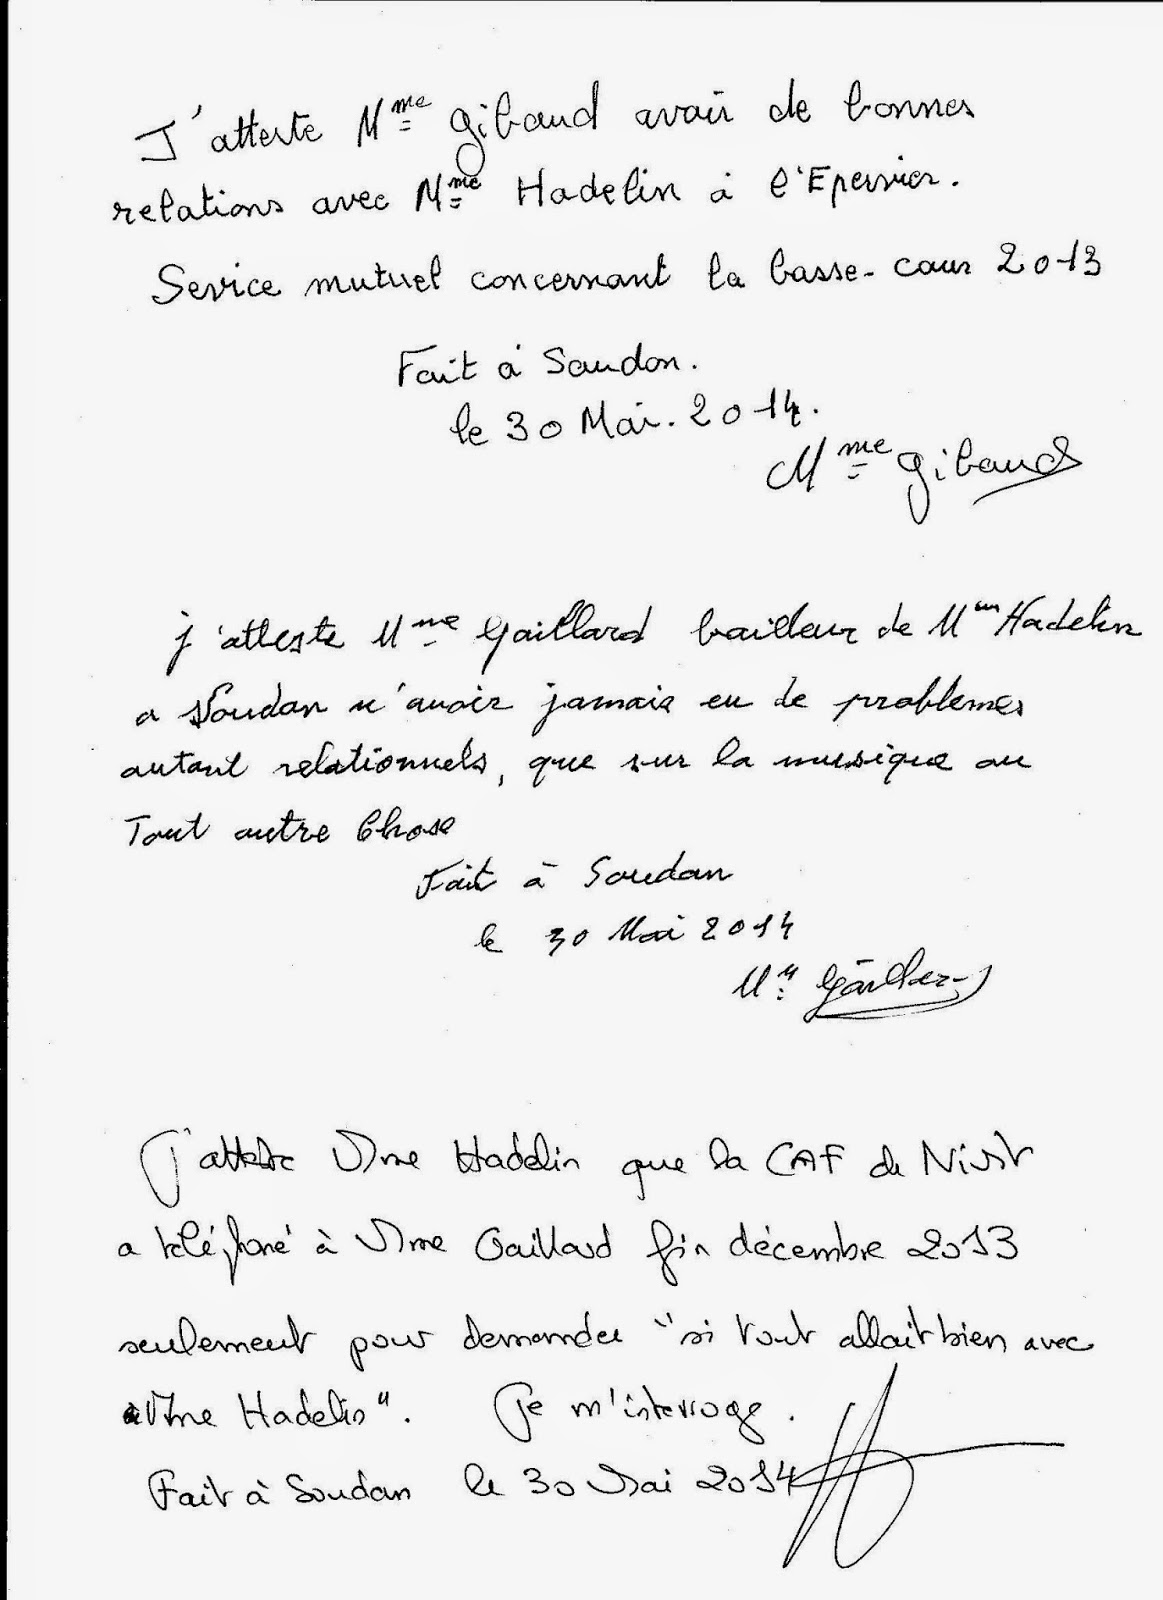 J'atteste Mme Gibaud avoir de bonnes
relations avec Mme Hadelin à l'Epervier.
Sevice mutuel concernant la basse-cour 2013
Fait à Soudan.
le 30 Mai. 2014.
Mme Gibaud
j'atteste Mme Gaillard bailleur de Mme Hadelin
a Soudan n'avoir jamais eu de problemes
autant relationnels, que sur la musique ou
Tout autre Chose
Fait à Soudan
le 30 Mai 2014
J'atteste Mme Hadelin que la CAF de Niort
a téléphoné à Mme Gaillard fin décembre 2013
seulement pour demander "si tout allait bien avec
Mme Hadelin". Je m'interroge.
Fait à Soudan le 30 Mai 2014